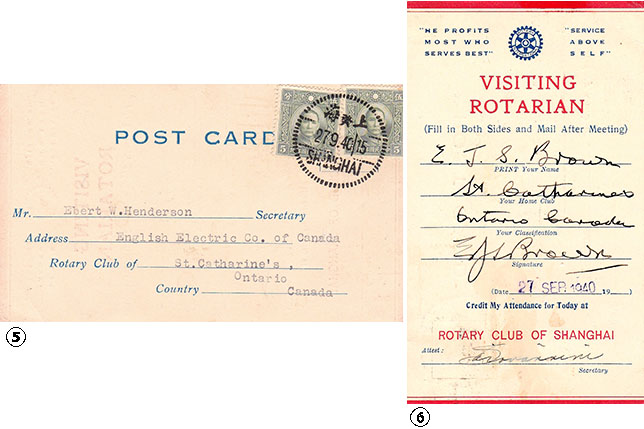 POST CARD
5
5
上海
27.9.40.15
SHANGHAI
Mr. Ebert W.Henderson Secretary
Address English Electric Co. of Canada
Rotary Club of St.Catharine's,
Ontario
Country Canada
5
"HE PROFITS
MOST WHO
SERVES BEST"
"SERVICE
ABOVE
SELF"
VISITING
ROTARIAN
(Fill in Both Sides and Mail After Meeting)
E. J. S. Brown
PRINT Your Name
St. Catharines
Your Home Club
Ontario Canada
Your Classification
EJS Brown
Signature
(Date 27 SEP 1940 19 )
Credit My Attendance for Today at
ROTARY CLUB OF SHANGHAI
Attest:
Secretary
6